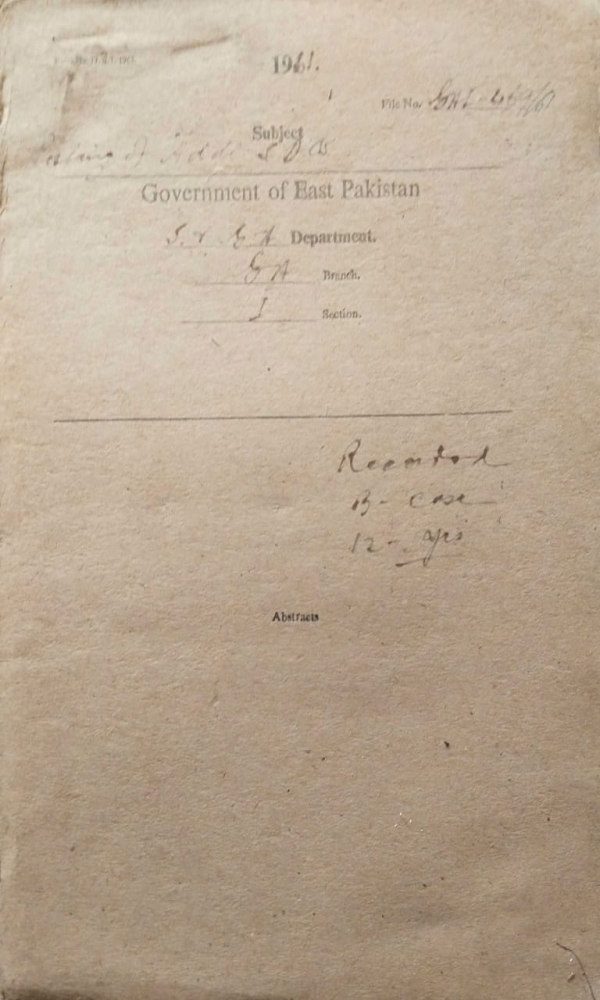 1961.
File No. GAI-
Subject
of Addl S D Os
Government of East Pakistan
S. & G A Department.
GA Branch.
I Section.
Recorded
B- case
12- yrs
Abstracts